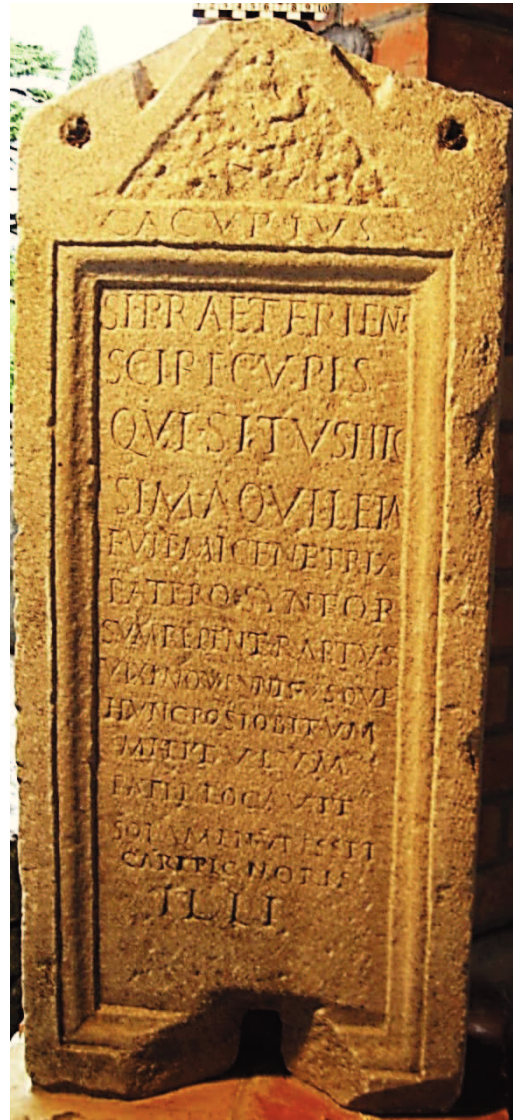 8 9 10
SI PRAETERIENS
SCIRE CVPIS
QVI SITVS HIC
SIM AQVILEIA
FVIT MI GENETRIX
PATER
SVM REPENT RAPTVS
VIXI
HVNC POST OBITVM
MI TITVLVM
LOCAVIT
SOLAMEN VT ESSET
CARI PIGNORIS
ILLI